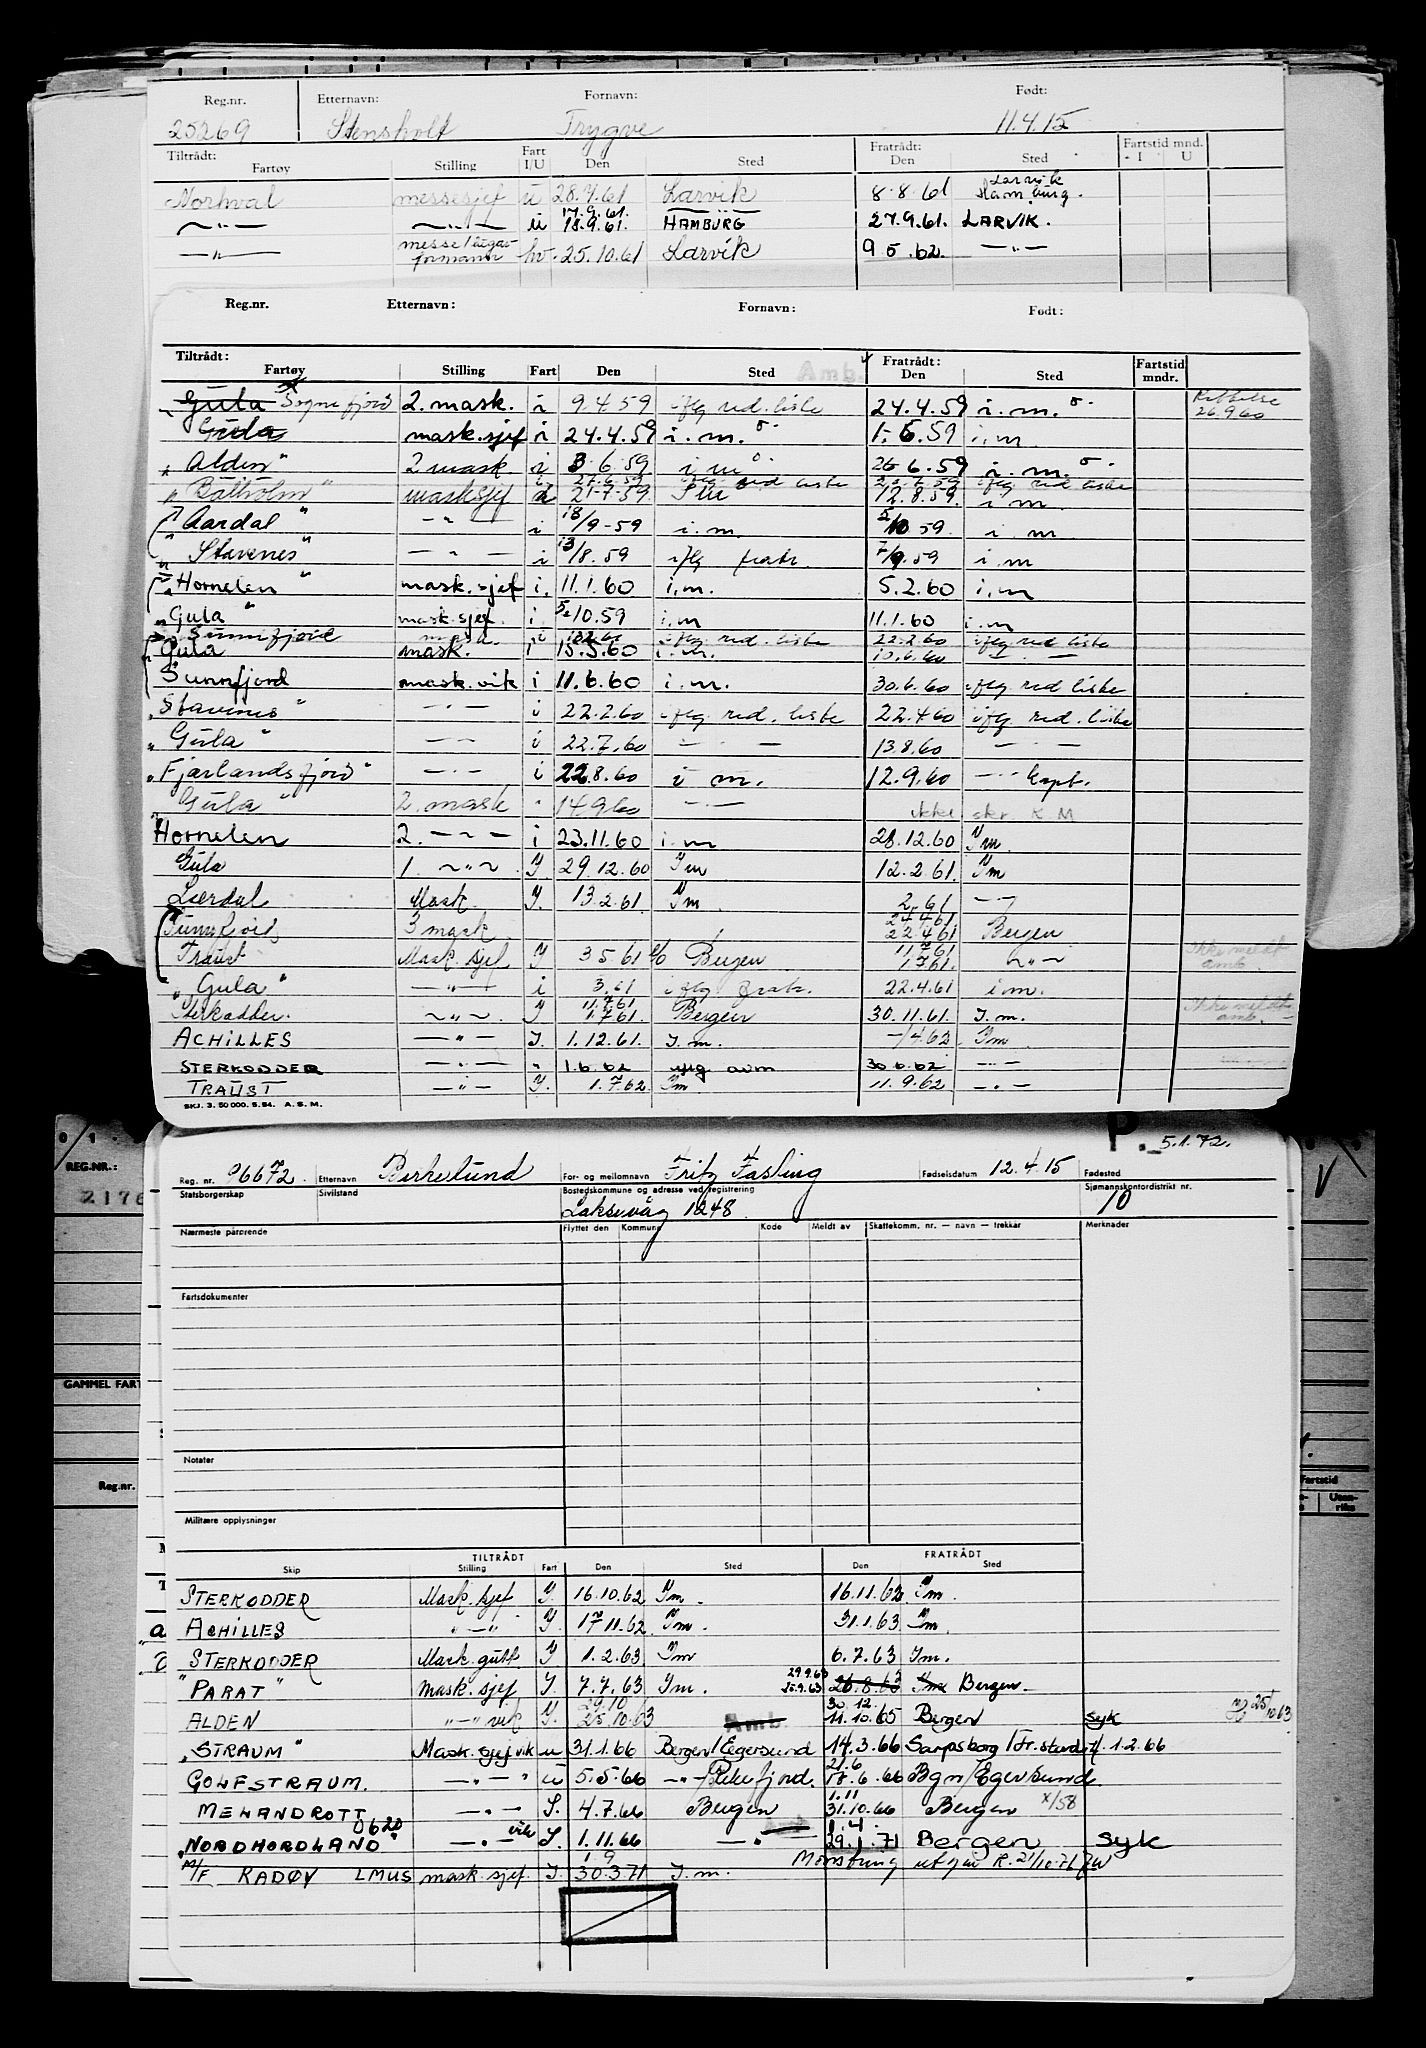 Reg.nr. Etternavn: Fornavn: Født:
25269 Stensholt Trygve 11.4.15
Tiltrådt: Fart Fratrådt: Fartstid mnd.
Fartøy Stilling I/U Den Sted Den Sted I U
Norhval messesjef u 28.4.61 Larvik 8.8.61 Larvik Hamburg.
—„— —„— u 17.9.61. 18.9.61. HAMBURG 27.9.61. LARVIK.
—„— messe/lugar- formann hv. 25.10.61 Larvik 9 5.62. —„—
Reg.nr. Etternavn: Fornavn: Født:
Tiltrådt: Amb. Fratrådt: Fartstid
Fartøy Stilling Fart Den Sted Den Sted mndr.
Gula Sognefjord 2. mask. i 9.4.59 iflg red. liste 24.4.59 i.m. 26.9.60
Gula mask.sjef i 24.4.59 i.m. 1.6.59 i.m
"Alden" 2 mask. i 3.6.59 i m 26.6.59 i.m.
"Balholm" masksjef 21-7-59 12.8.59. i m
"Aardal" —„— i 18/9-59 i.m. 59. i m
"Stavenes" —„— i 13/8.59 iflg fratr. 7/9.59 i.m
"Hornelen" mask.sjef i. 11.1.60 i.m. 5.2.60 i.m
"Gula" mask.sjef. i 5/10.59 i.m 11.1.60 i.m
Sunnfjord mask. i iflg. red. liste 22.2.60 iflg red liste
Gula mask. i 15.5.60 i.m. 10.6.60 — —
Sunnfjord mask.vik i 11.6.60 i.m. 30.6.60 iflg red liste
"Stavenes" —„— i 22.2.60 iflg. red. liste 22.4.60 iflg red. liste
"Gula" —„— i 22.7.60 — — 13.8.60 — —
"Fjærlandsfjord" —„— i 22.8.60 i m. 12.9.60 —„— Capt.
"Gula" 2. mask " 14.9.60 —„— ikke skr. K M
Hornelen 2. —„— i 23.11.60 i.m 28.12.60 Im.
Gula 1. —„— I. 29.12.60 Im 12.2.61. Im
Lærdal Mask. I. 13.2.61. Im 2.61 —„—
Sunnfjord 3 mask 24.4.61 22.4.61 Bergen
Traust Mask. sjef I 3.5.61 Bergen 11.7.61 1.7.61. —„— Ikke meldt amb.
"Gula" —„— i 3.61 iflg fratr. 22.4.61 i m.
Sterkodder. —„— I 11.7.61 1.7.61. Bergen 30.11.61. I.m. Ikke meldt amb.
ACHILLES —„— I. 1.12.61. I.m. -/4.62 Im
STERKODDER —„— " 1.6.62 30.6.62 —„—
TRAUST —„— I. 1.7.62 Im. 11.9.62 —„—
SKJ. 3. 50 000. 5.54. A.S.M.
P. 5.1.72.
REG.NR.: 2176
Reg. nr. 96672. Etternavn Birkelund For- og mellomnavn Fritz Fasting Fødselsdatum 12.4.15 Fødested
Statsborgerskap Sivilstand Bostedskommune og adresse ved registrering Sjømannskontordistrikt nr.
Laksevåg 1248. 10
Nærmeste pårørende Flyttet den Kommune Kode Meldt av Skattekomm. nr. — navn — trekkar Merknader
Fartsdokumenter
GAMMEL FART
Notater
Reg.nr. Fartstid
Militære opplysninger
TILTRÅDT FRATRÅDT
Skip Stilling Fart Den Sted Den Sted
STERKODDER Mask. sjef I. 16.10.62 Im. 16.11.62 Im.
ACHILLES —„— I. 17.11.62 Im. 31.1.63 Im.
STERKODDER Mask.gutt I 1.2.63 Im 6.7.63 Im.
"PARAT" Mask. sjef I. 7.7.63 Im. 29.9.63 25.9.63 26.8.63 Im Bergen.
ALDEN —„— vik I. 29.10 25.10.63 Amb. 30.12. 11.10.65 Bergen syk 25/10 63.
"STRAUM" Mask.sjef vik u 31.1.66 Bergen/Egersund 14.3.66 Sarpsborg/Fr.stad 1.2.66
GOLFSTRAUM. —„— " u 5.5.66 —„—/Rekefjord. 21.6 .6.66 Bgn/Egersund
MELANDROTT —„— S. 4.7.66 Bergen 1.11 31.10.66 Bergen x/58
"NORDHORDLAND" 0620 —„— vik S. 1.11.66 —„— Amb 1.4. 29.1.71 Bergen syk
M/F RADØY LMUS mask.sjef. I 1 9 30.3.71 I.m. Mønstring utgår R. 21/10-71